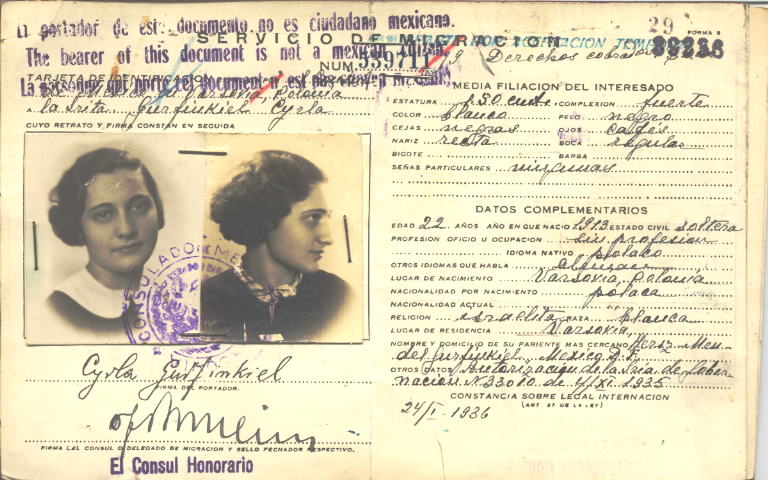 El portador de este documento no es ciudadano mexicano.
SERVICIO DE MIGRACION
The bearer of this document is not a mexican citizen.
NUM.
TARJETA DE IDENTIFICACION
Polonia
a la Srita. Gurfinkiel Cyrla
CUYO RETRATO Y FIRMA CONSTAN EN SEGUIDA
CONSULADO DE
Cyrla Gurfinkiel
FIRMA DEL PORTADOR.
FIRMA DEL CONSUL O DELEGADO DE MIGRACION Y SELLO FECHADOR RESPECTIVO.
El Consul Honorario
29
FORMA 5
Derechos cobrados
MEDIA FILIACION DEL INTERESADO
ESTATURA 1.50 cmt. COMPLEXION fuerte
COLOR blanco PELO negro
CEJAS negras OJOS cafés
NARIZ recta BOCA regular
BIGOTE BARBA
SEÑAS PARTICULARES ningunas
DATOS COMPLEMENTARIOS
EDAD 22 AÑOS AÑO EN QUE NACIO 1913 ESTADO CIVIL soltera
PROFESION OFICIO U OCUPACION sin profesion
IDIOMA NATIVO polaco
OTROS IDIOMAS QUE HABLA
LUGAR DE NACIMIENTO Varsovia, Polonia
NACIONALIDAD POR NACIMIENTO polaca
NACIONALIDAD ACTUAL
RELIGION israelita RAZA blanca
LUGAR DE RESIDENCIA Varsovia
NOMBRE Y DOMICILIO DE SU PARIENTE MAS CERCANO Hersz Men-
del Gurfinkiel, Mexico D.F.
OTROS DATOS Autorizacion de la Sria. de Gober-
nacion N° 33010 de 4/XI. 1935
CONSTANCIA SOBRE LEGAL INTERNACION
(ART 57 DE LA LEY)
24/I - 1936